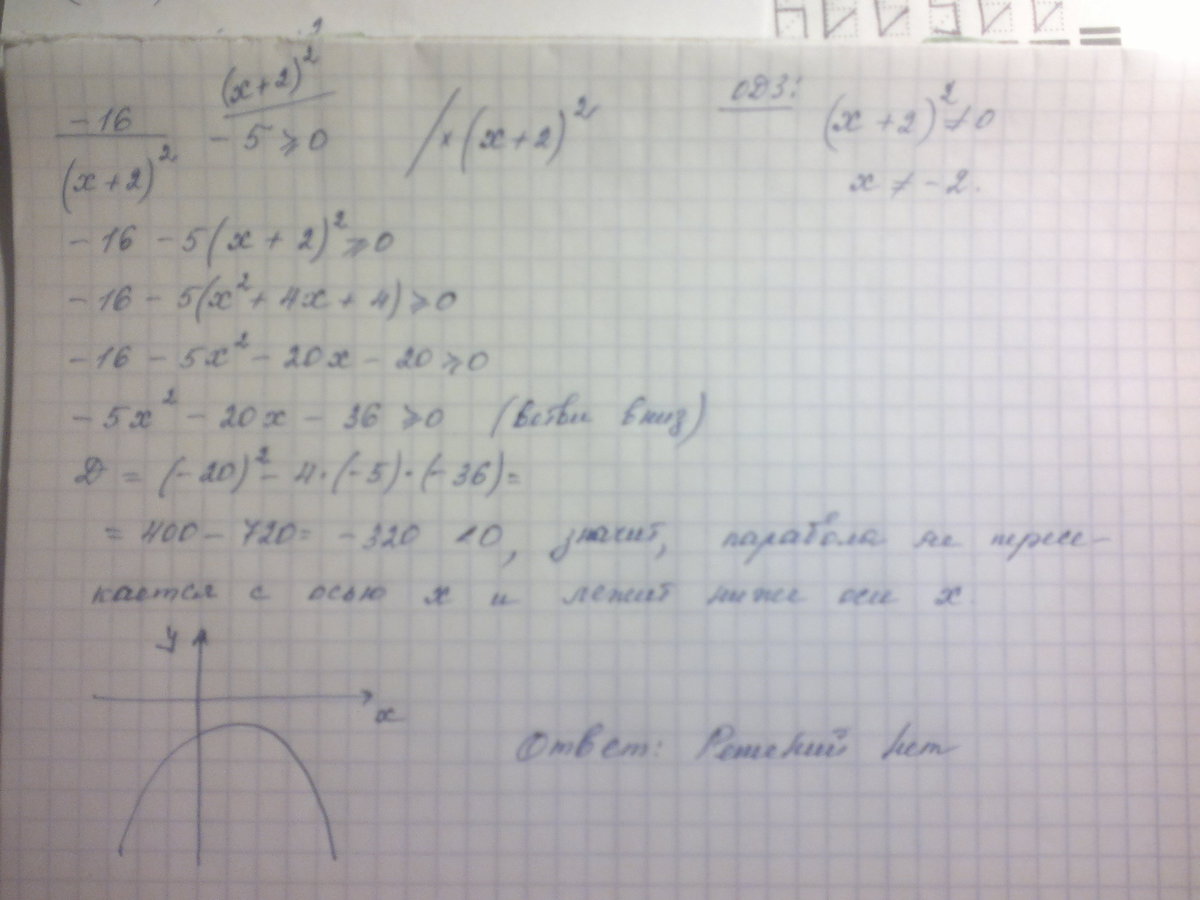 (x+2)²
-16/(x+2)² - 5 ⩾ 0 / × (x+2)² ОДЗ: (x+2)² ≠ 0
x ≠ -2.
-16 - 5(x + 2)² ⩾ 0
-16 - 5(x² + 4x + 4) ⩾ 0
-16 - 5x² - 20x - 20 ⩾ 0
-5x² - 20x - 36 ⩾ 0 (ветви вниз)
D = (-20)² - 4·(-5)·(-36) =
= 400 - 720 = -320 < 0, значит, парабола не пресе-
кается с осью x и лежит ниже оси x.
y
x
Ответ: Решений нет